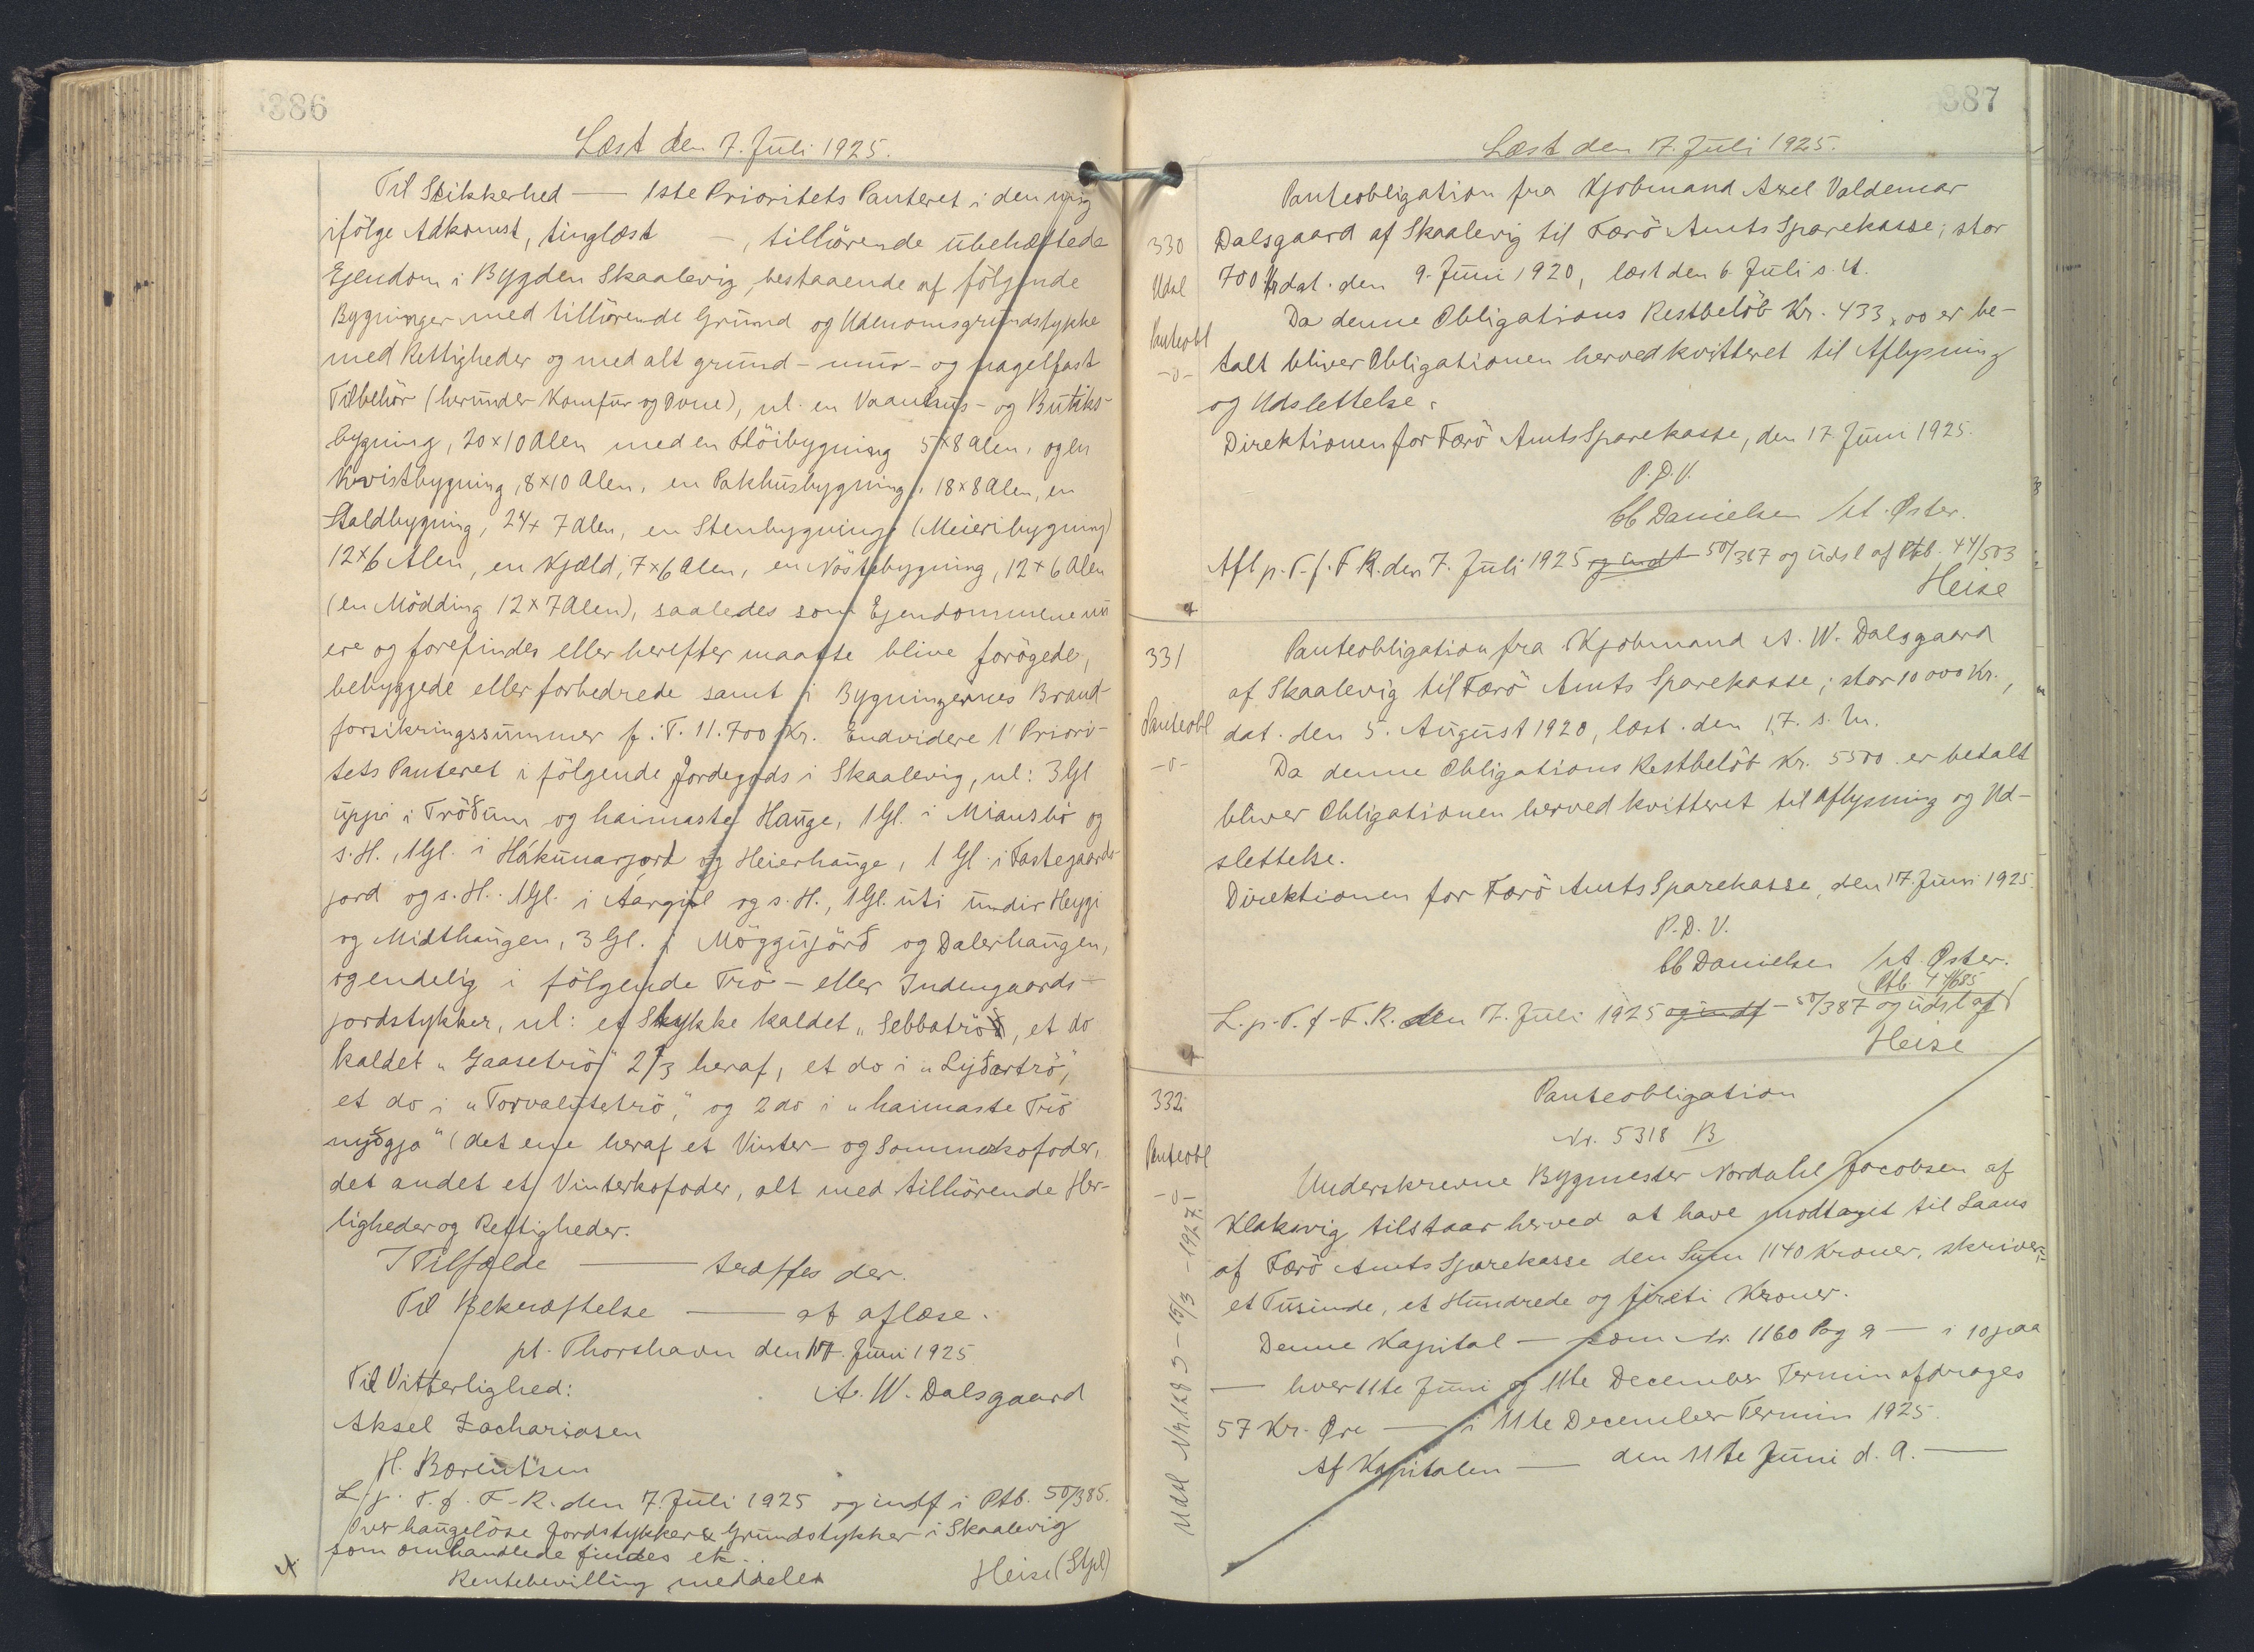 386
Læst den 7. Juli 1925.
Til Sikkerhed — 1ste Prioritets Panteret i den mig
ifölge Adkomst, tinglæst —, tilhörende ubehæftede
Ejendom i Bygden Skaalevig, bestaaende af fölgende
Bygninger med tilhörende Grund og Udenomsgrundstykke
med Rettigheder og med alt grund- mur- og nagelfast
Tilbehör (herunder Komfur og Ovne), nl. en Vaanhus- og Butiks-
bygning, 20×10 Alen med en Höibygning 5×8 Alen, og en
Kvistbygning, 8×10 Alen, en Pakhusbygning, 18×8 Alen, en
Staldbygning, 24× 7 Alen, en Stenbygning (Meieribygning)
12×6 Alen, en Kjæld, 7×6 Alen, en Nöstebygning, 12×6 Alen
(en Mödding 12×7 Alen), saaledes som Ejendommene nu
ere og forefindes eller herefter maatte blive forögede,
bebyggede eller forbedrede samt i Bygningernes Brand-
forsikringssummer p. T. 11.700 Kr. Endvidere 1' Priori-
tets Panteret i fölgende Jordegods i Skaalevig, nl: 3 Gl
uppi i Tröðum og haimaste Hauge, 1 Gl. i Miansbö og
s. H., 1 Gl. i Hákunarjord og Heierhauge, 1 Gl. i Fastegaards-
jord og s. H. 1 Gl. i Áargipl og s. H., 1 Gl. úti undir Heygi
og Midthaugen, 3 Gl. i Möggujörð og Dalerhaugen,
og endelig i fölgende Trö- eller Indengaards-
jordstykker, nl: et Stykke kaldet "Sebbatrö", et do
kaldet "Gaasetrö" 2/3 heraf, et do i "Lyðartrö",
et do i "Torvalutetrö", og 2 do i "haimaste Trö
nyðgja" (det ene heraf et Vinter- og Sommerkofoder,
det andet et Vinterkofoder, alt med tilhörende Her-
ligheder og Rettigheder.
I Tilfælde — træffes der.
Til Bekræftelse — at aflæse.
pt. Thorshavn den 17. Juni 1925
Til Vitterlighed: A. W. Dalsgaard
Aksel Zachariasen
H. Bærentsen
L. p. T. f. F. R. den 7. Juli 1925 og indf i Ptb. 50/385.
Over haugelöse Jordstykker & Grundstykker i Skaalevig
som omhandlede findes ek.
Rentebevilling meddeles Heise (Stpl)
387
Læst den 17. Juli 1925.
Panteobligation fra Kjöbmand Axel Valdemar
330 Dalsgaard af Skaalevig til Færö Amts Sparekasse; stor
Udsl 700 Kr dat. den 9. Juni 1920, læst den 6. Juli s. A.
Panteobl Da denne Obligations Restbelöb Kr. 433,00 er be-
-o- talt bliver Obligationen herved kvitteret til Aflysning
og Udslettelse.
Direktionen for Færö Amts Sparekasse, den 17 Juni 1925.
P. D. V.
CC Danielsen /A. Øster.
Afl p. T. f. F R. den 7. Juli 1925 og indf 50/387 og udsl af Ptb. 44/503
Heise
331 Panteobligation fra Kjöbmand A. W. Dalsgaard
af Skaalevig til Færö Amts Sparekasse; stor 10 000 Kr.,
Panteobl dat. den 5. August 1920, læst. den 17. s. M.
-o- Da denne Obligations Restbelöb Kr. 5500 er betalt
bliver Obligationen herved kvitteret til Aflysning og Ud-
slettelse.
Direktionen for Færö Amts Sparekasse, den 17. Juni 1925.
P. D. V.
CC Danielsen /A. Øster.
Ptb. 44/685
L. p. T. f. F. R. den 7. Juli 1925 og indf 50/387 og udsl af
Heise
332 Panteobligation
Nr. 5318 B
Panteobl Underskrevne Bygmester Nordahl Jacobsen af
-o- Klaksvig tilstaar herved at have modtaget til Laans
af Færö Amts Sparekasse den Sum 1140 Kroner, skriver:
et Tusinde, et Hundrede og fireti Kroner.
Denne Kapital — som Nr. 1160 Pag 9 — i 10 paa
— hver 11te Juni og 11te December Termin afdrages
57 Kr. Øre — i 11te December Termin 1925.
Af Kapitalen — den 11te Juni d. A. —
Udsl Nr. 128 3 — 15/3 - 1927.